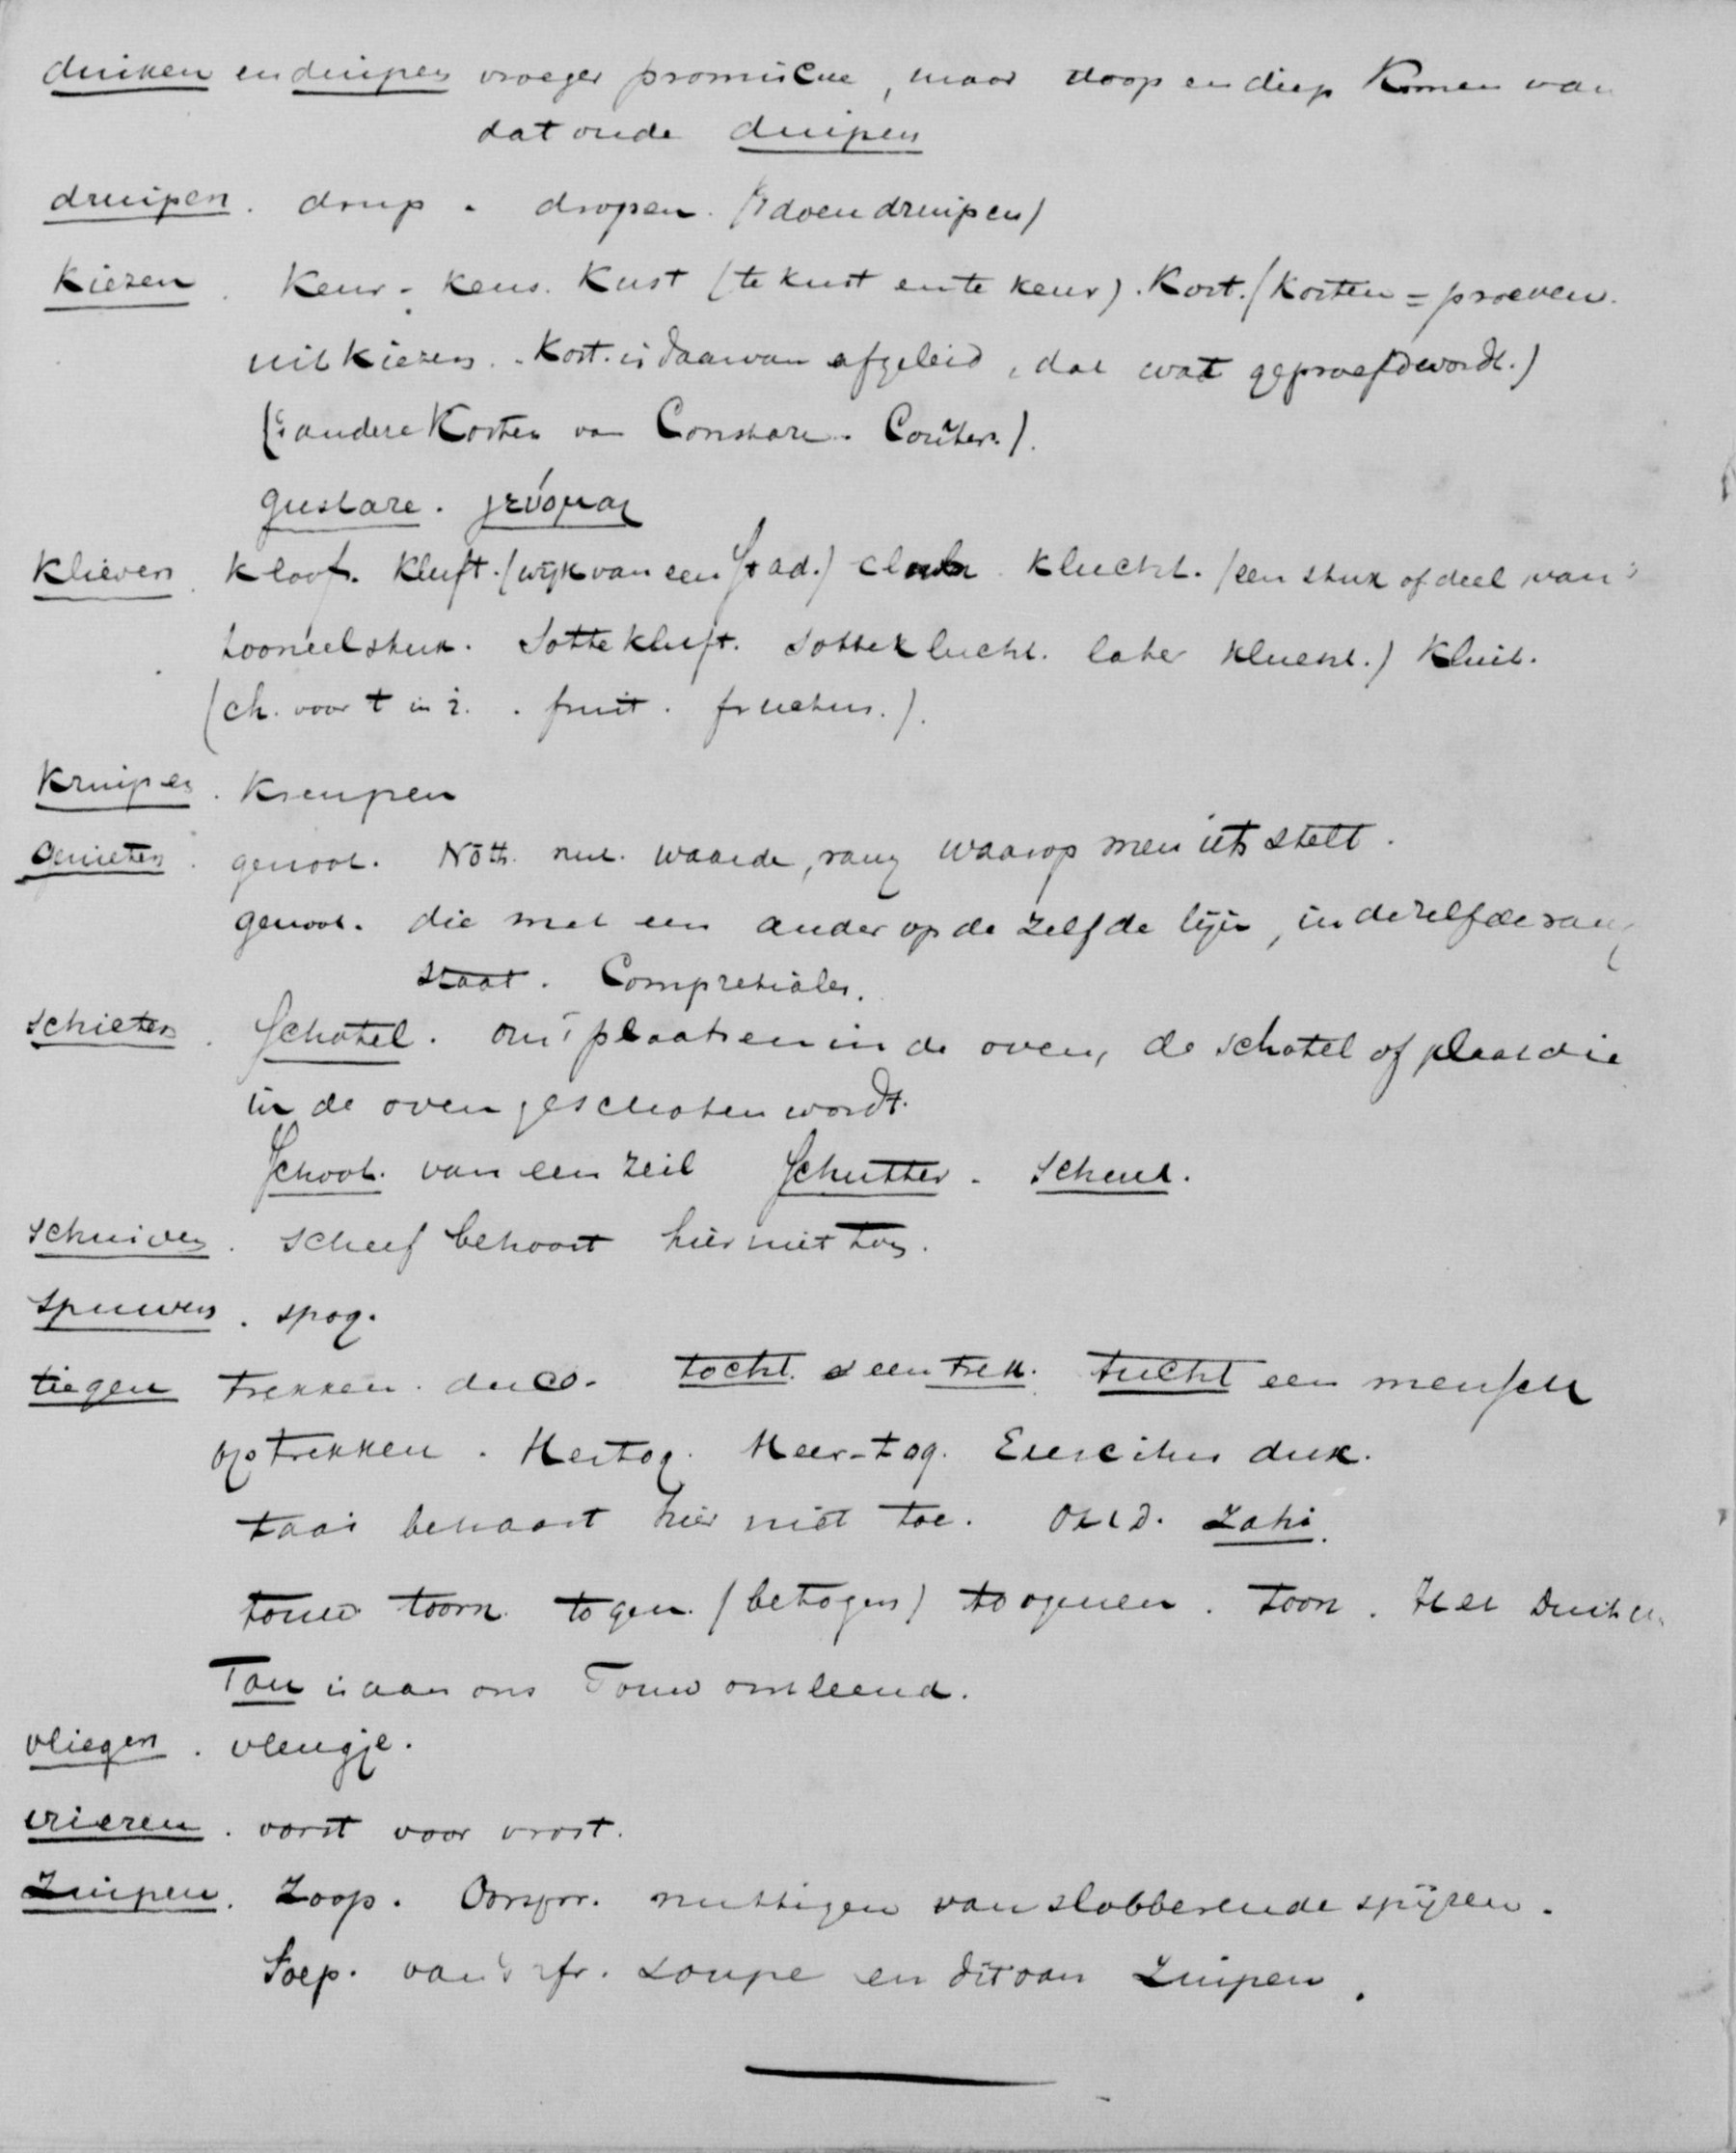 duiken en duipen vroeger promiscue, maar doop en diep komen van
dat oude duipen
druipen. drup. dropen. (doen druipen)
kiezen. Keur. keus. Kust (te kust en te keur). Kost. (Kosten = proeven.
uitkiezen. Kost. is daarvan afgeleid, dat wat geproefd wordt.)
(andere Kosten van Constare. Coûter.).
gustare. γεύομαι
Klieven. kloof. kluft. (wijk van een Stad.) klucht. (een stuk of deel van
tooneelstuk. Sottekluft. sotteklucht. later klucht.) Kluit.
(ch. voor t in i. fruit. fructus.).
Kruipen. Kreupen
Genieten. genoot. Nöth. waarde, rang waarop men iets stelt.
genoot. die met een ander op de zelfde lijn, in dezelfde rang
staat. Compretiales.
schieten. Schotel. plaatsen in de oven, de schotel of plaat die
in de oven geschoten wordt.
Schoot. van een zeil Schutter. Scheut.
schuiven. scheef behoort hier niet toe.
spuwen. spog.
tiegen trekken. duco. tocht. een trek. tucht een mensch
optrekken. Hertog. Heer-tog. Exercitus dux.
taai behoort hier niet toe. Oud. zahi.
touw toom. togen. (betogen) toogenen. toon. Het Duitsche
Tau is aan ons Touw ontleend.
vliegen. vleugje.
vriezen. vorst voor vrost.
Zuipen. Zoop. Oorspr. nuttigen van slobberende spijzen.
Soep. van 't fr. soupe en dit van Zuipen.